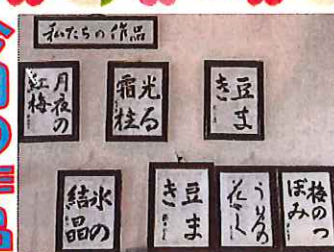 私たちの作品
月夜の
紅梅
光る
霜柱
豆ま
き
氷の
結晶
豆ま
き
うめの
花さく
梅のつ
ぼみ